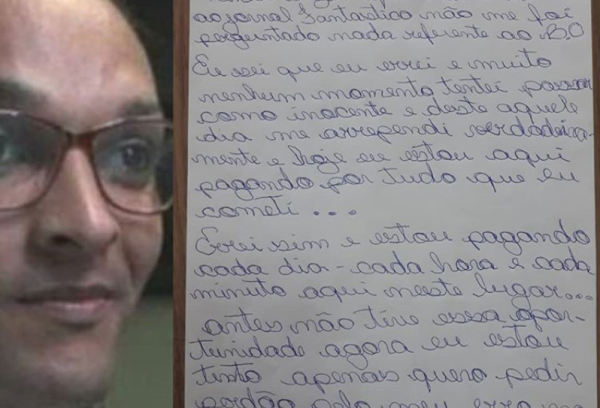 ao jornal Fantastico não me foi
perguntado nada referente ao BO
Eu sei que eu errei e muito
nenhum momento tentei passar
como inocente e deste aquele
dia me arrependi verdadeira-
mente e hoje eu estou aqui
pagando por tudo que eu
cometi ...
Errei sim e estou pagando
cada dia - cada hora e cada
minuto aqui neste lugar...
antes não tive essa opor-
tunidade agora eu estou
tinto apenas quero pedir
perdão pelo meu erro